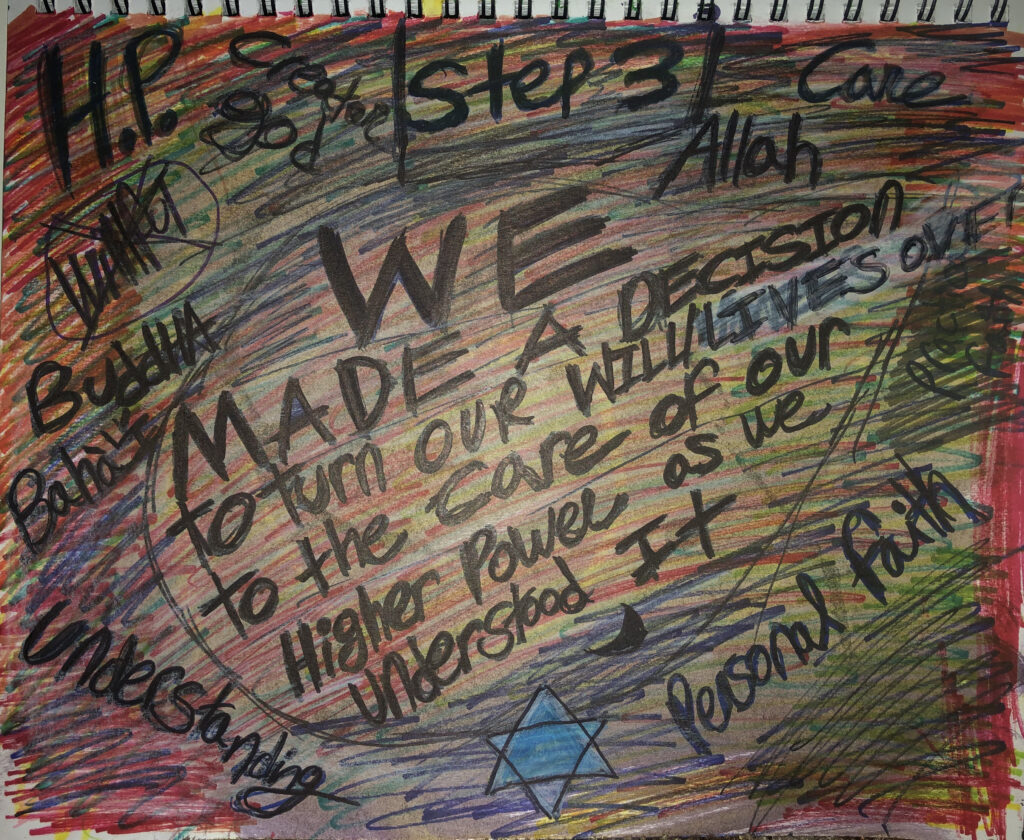 H.P.
Step 3
Care
Allah
WE
MADE A DECISION
to turn OUR WILL/LIVES OVER
to the care of our
Higher Power as we
understood It
Buddha
Bahá'í
Understanding
Personal faith